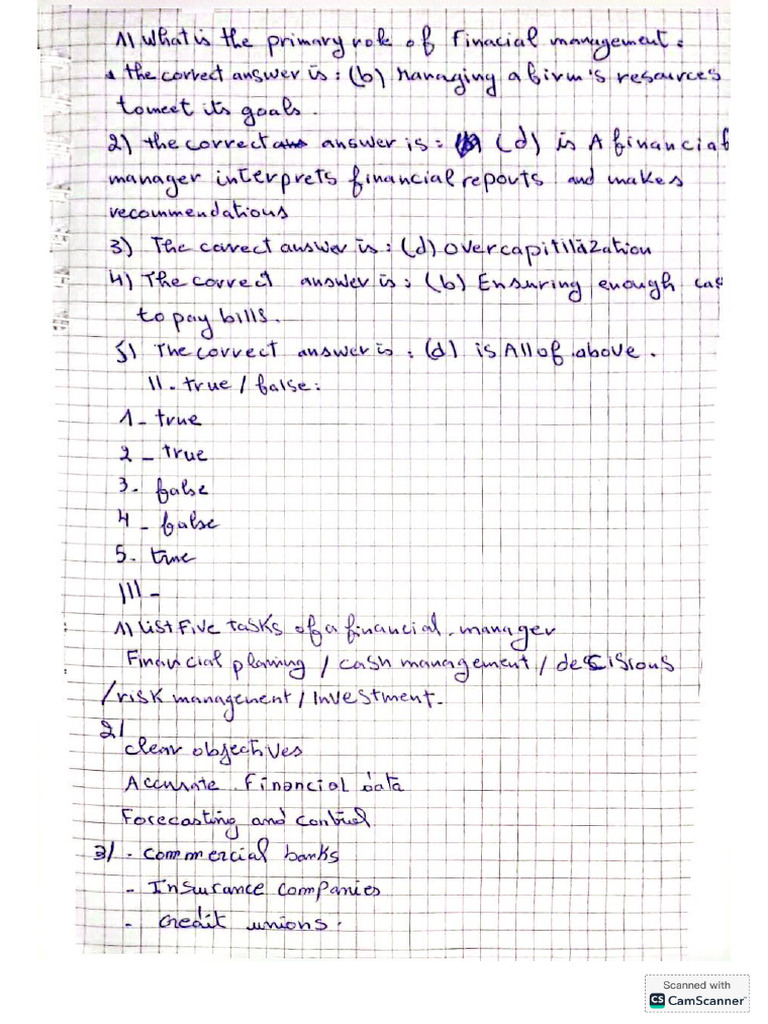 1) What is the primary role of Finacial management:
the correct answer is: (b) Managing a firm's resources
to meet its goals.
2) the correct answer is: (d) is A financial
manager interprets financial reports and makes
recommendations
3) The correct answer is: (d) overcapitilization
4) The correct answer is: (b) Ensuring enough cas
to pay bills.
5) The correct answer is: (d) is All of above.
II. true / false:
1 - true
2 - true
3. false
4 - false
5. true
III -
1) List Five tasks of a financial manager
Financial planing / cash management / decisions
/ risk management / Investment.
2/
clear objectives
Accurate Financial data
Forecasting and control
3/ - commercial banks
- Insurance companies
- credit unions.
Scanned with
CS CamScanner